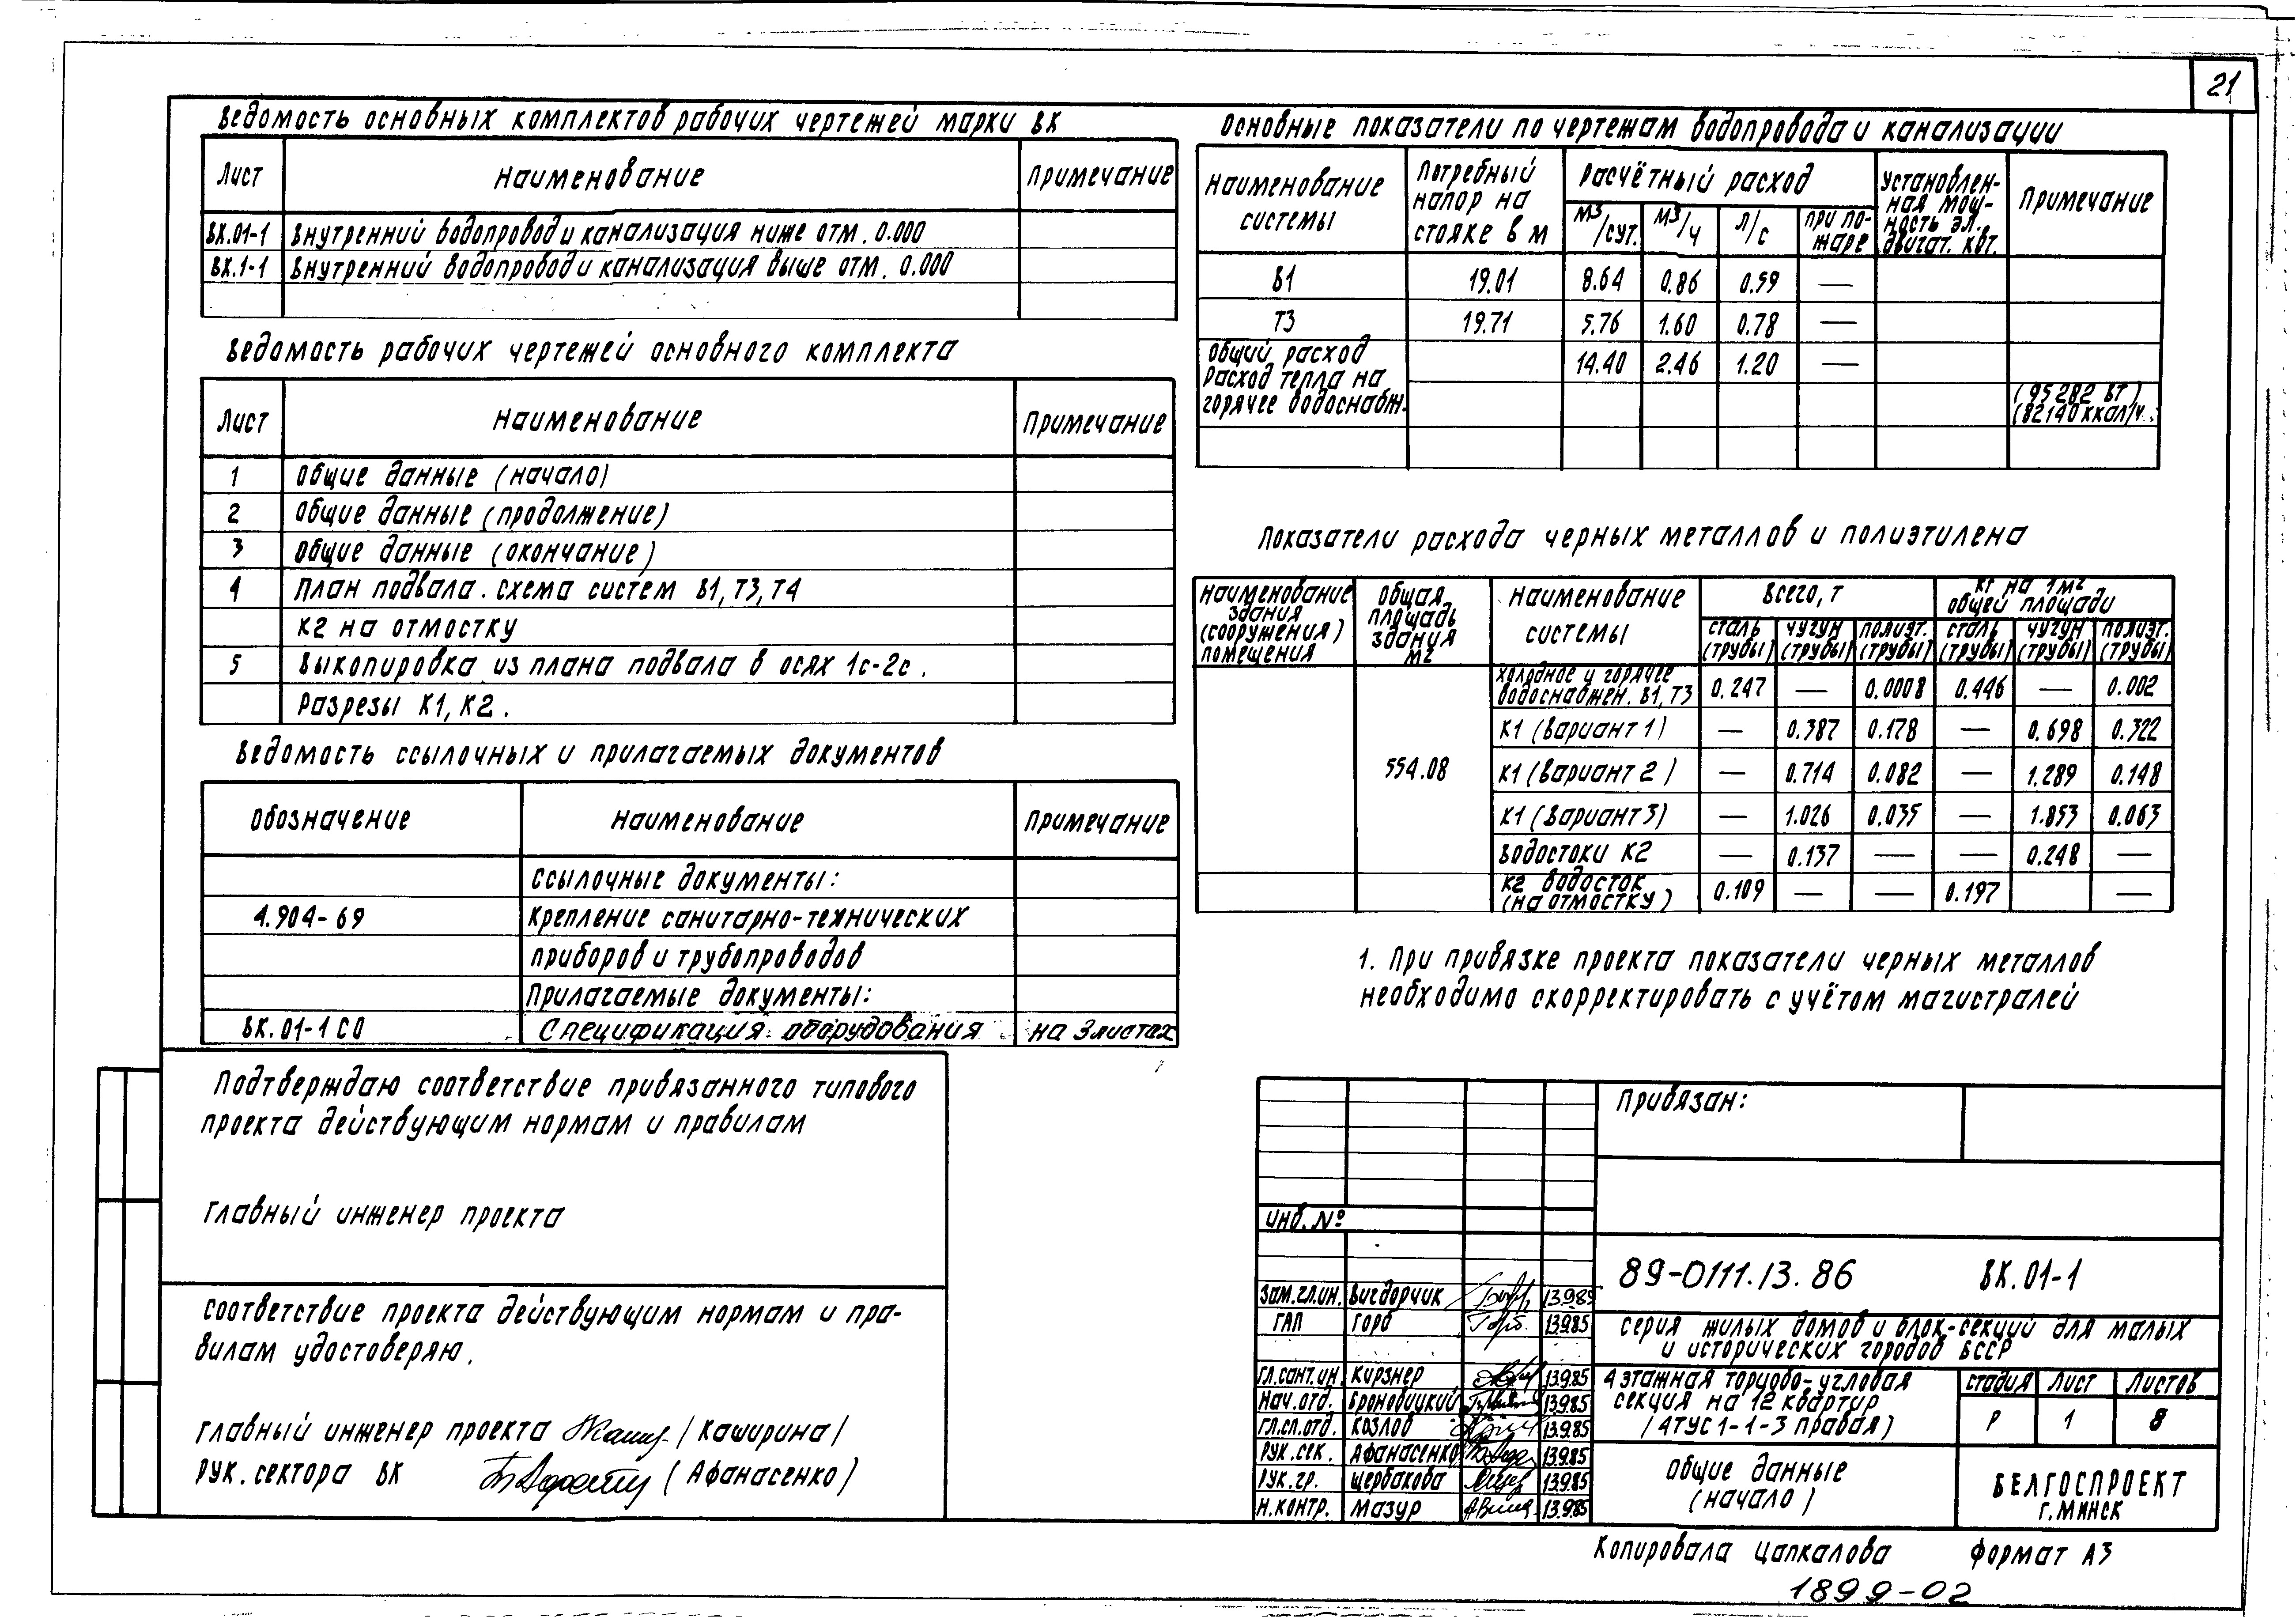 21
Ведомость основных комплектов рабочих чертежей марки ВК
Лист Наименование Примечание
ВК.01-1 Внутренний водопровод и канализация ниже отм. 0.000
ВК.1-1 Внутренний водопровод и канализация выше отм. 0.000
Ведомость рабочих чертежей основного комплекта
Лист Наименование Примечание
1 Общие данные (начало)
2 Общие данные (продолжение)
3 Общие данные (окончание)
4 План подвала. Схема систем В1, Т3, Т4
К2 на отмостку
5 Выкопировка из плана подвала в осях 1с-2с.
Разрезы К1, К2.
Ведомость ссылочных и прилагаемых документов
Обозначение Наименование Примечание
Ссылочные документы:
4.904-69 Крепление санитарно-технических
приборов и трубопроводов
Прилагаемые документы:
ВК.01-1 СО Спецификация оборудования на 3 листах
Подтверждаю соответствие привязанного типового
проекта действующим нормам и правилам
Главный инженер проекта
Соответствие проекта действующим нормам и пра-
вилам удостоверяю.
Главный инженер проекта /Каширина/
Рук. сектора ВК (Афанасенко)
Основные показатели по чертежам водопровода и канализации
Наименование системы Потребный напор на стояке в м Расчётный расход Установлен-ная мощ-ность эл. двигат. квт. Примечание
м3/сут. м3/ч л/с при по-жаре
В1 19.01 8.64 0.86 0.59 —
Т3 19.71 5.76 1.60 0.78 —
Общий расход 14.40 2.46 1.20 —
Расход тепла на
горячее водоснабж. (95282 Вт)
(82140 ккал/ч.)
Показатели расхода черных металлов и полиэтилена
Наименование здания (сооружения) помещения Общая площадь здания м2 Наименование системы Всего, т кг на 1м2 общей площади
сталь (трубы) чугун (трубы) полиэт. (трубы) сталь (трубы) чугун (трубы) полиэт. (трубы)
Холодное и горячее
водоснабжен. В1, Т3 0.247 — 0.0008 0.446 — 0.002
К1 (Вариант 1) — 0.387 0.178 — 0.698 0.322
554.08 К1 (Вариант 2) — 0.714 0.082 — 1.289 0.148
К1 (Вариант 3) — 1.026 0.035 — 1.853 0.063
Водостоки К2 — 0.137 — — 0.248 —
К2 водосток
(на отмостку) 0.109 — — 0.197 —
1. При привязке проекта показатели черных металлов
необходимо скорректировать с учётом магистралей
Привязан:
Инв. №
89-0111.13.86 ВК.01-1
Зам.гл.ин. Вигдорчик 13.9.85
ГАП Горб 13.9.85
Гл.сант.ин. Кирзнер 13.9.85
Нач.отд. Броновицкий 13.9.85
Гл.сп.отд. Козлов 13.9.85
Рук.сек. Афанасенко 13.9.85
Рук.гр. Щербакова 13.9.85
Н.контр. Мазур 13.9.85
Серия жилых домов и блок-секций для малых
и исторических городов БССР
4 этажная торцово-угловая
секция на 12 квартир
(4ТУС 1-1-3 правая)
Стадия Лист Листов
Р 1 8
Общие данные
(начало)
БЕЛГОСПРОЕКТ
г. Минск
Копировала Цапкалова Формат А3
1899-02